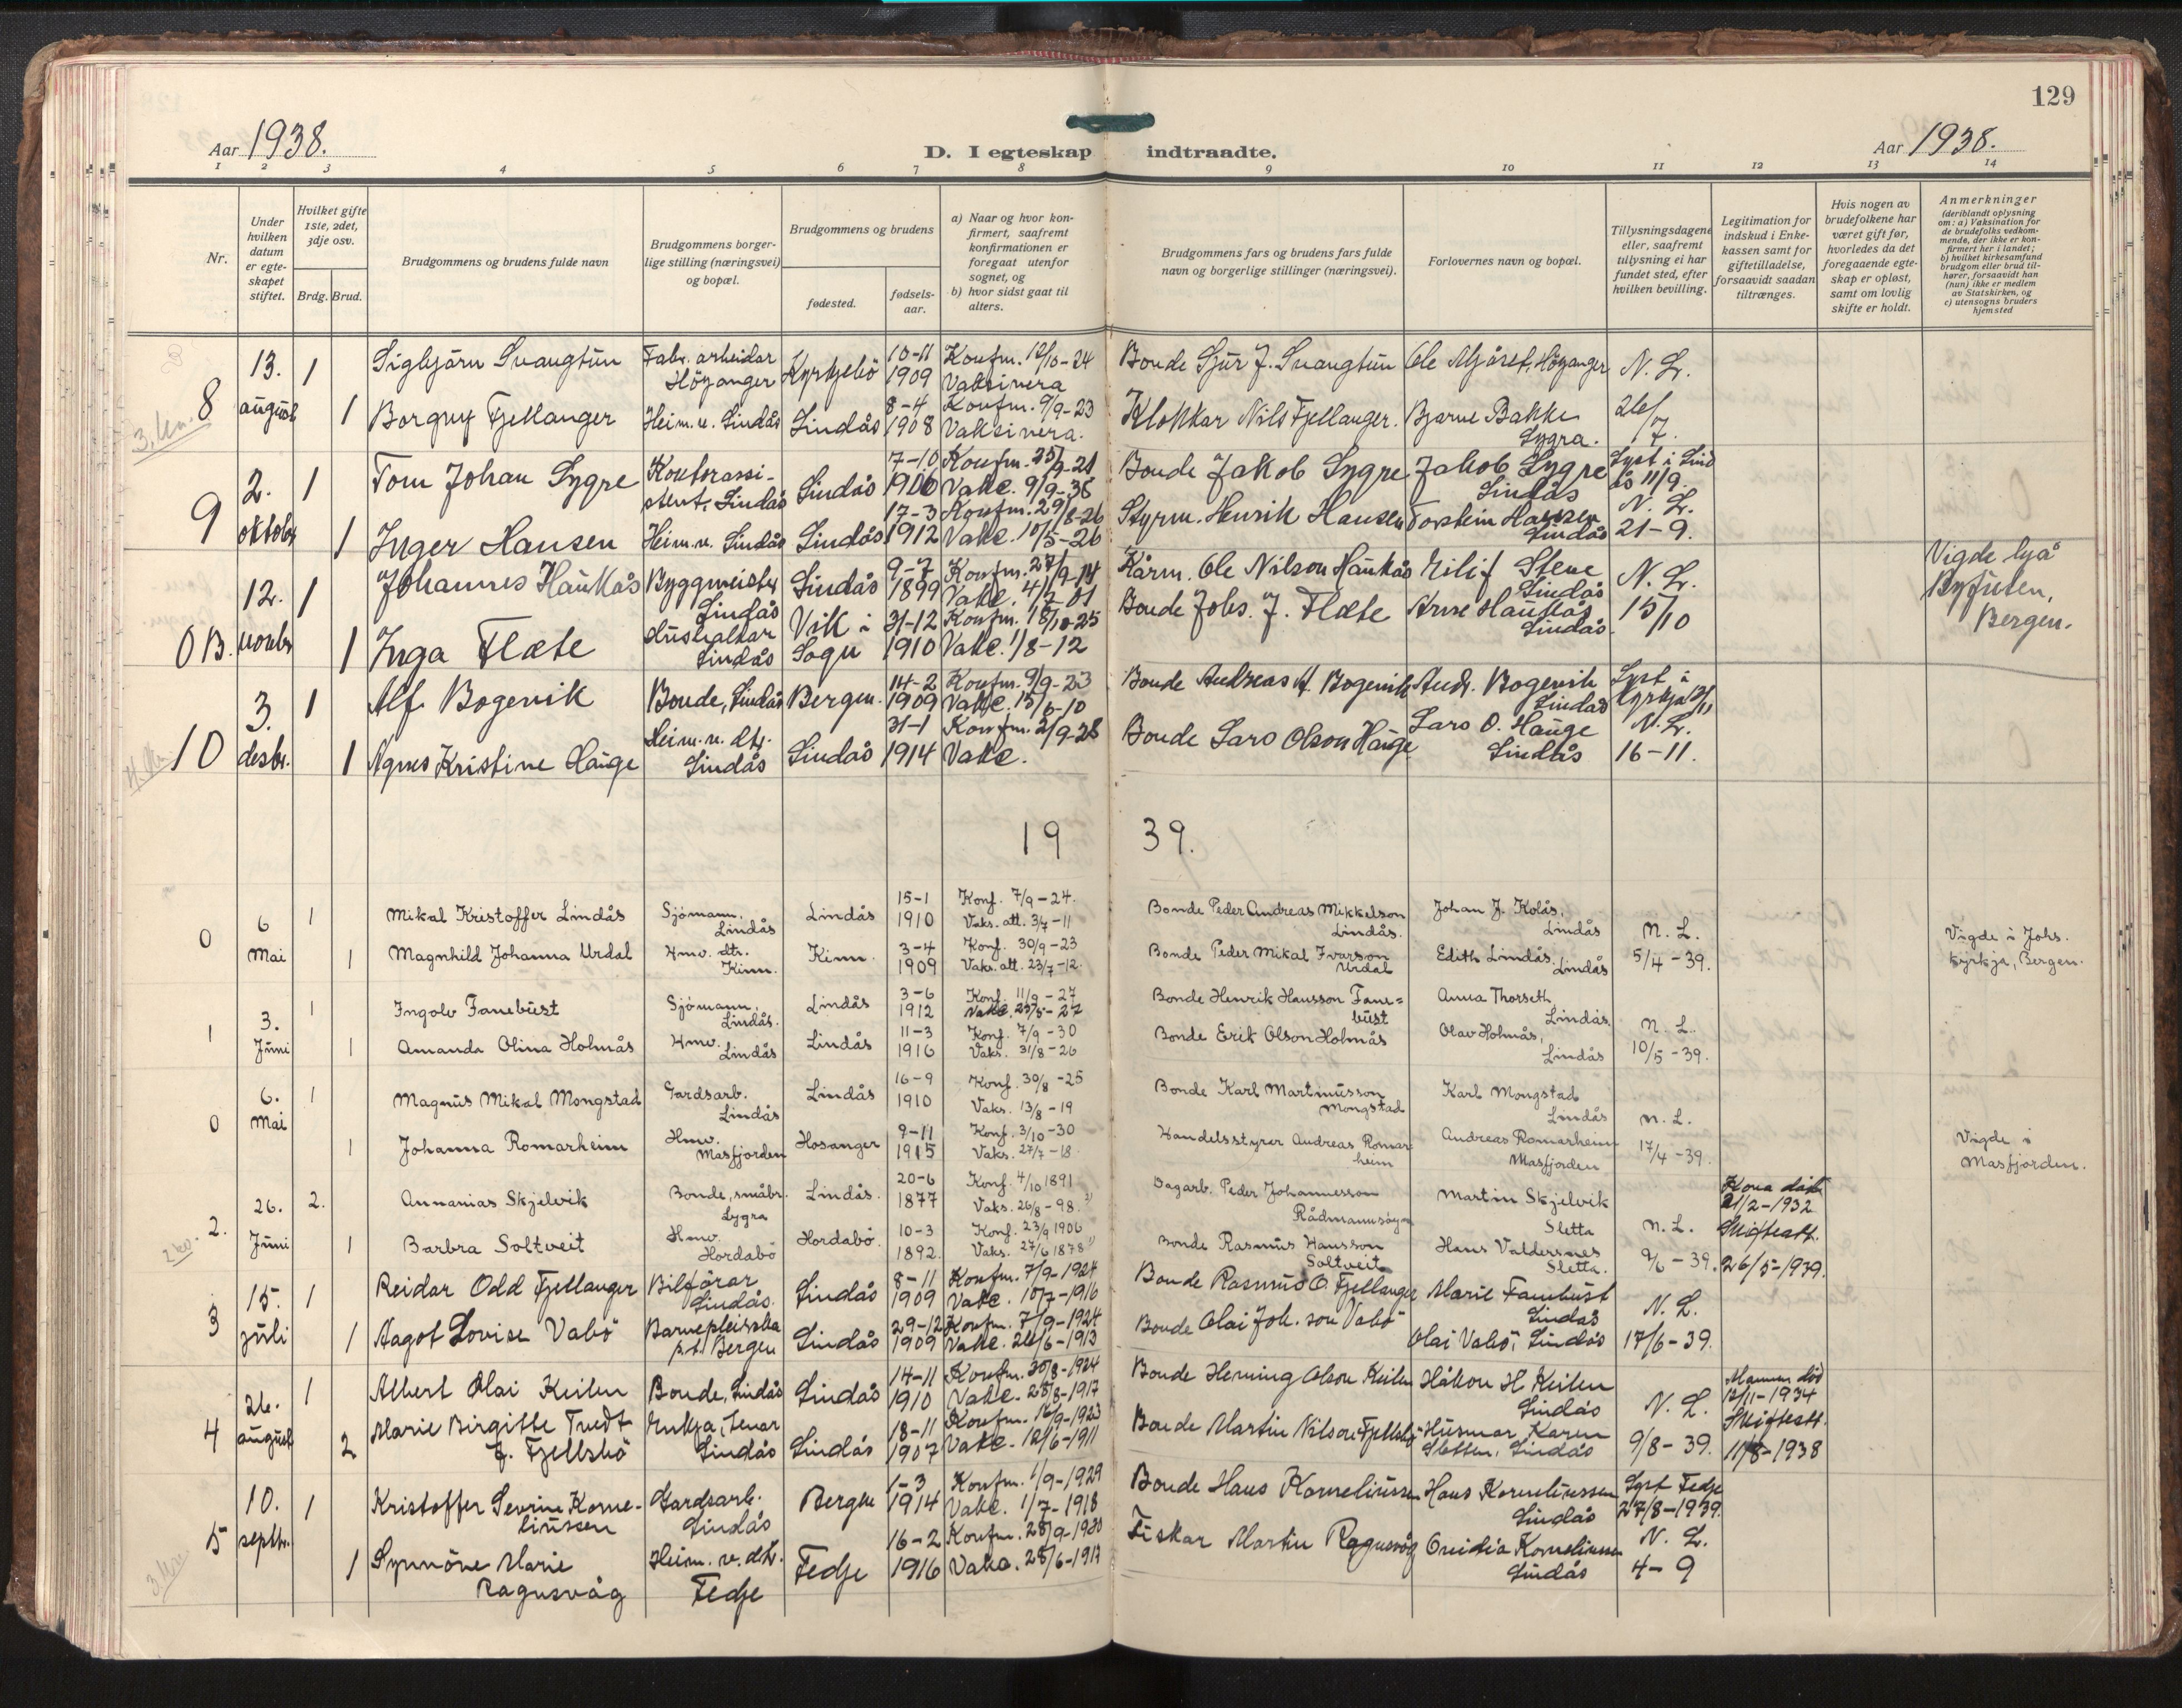 129
Aar 1938.
D. I egteskap indtraadte.
Aar 1938.
1 2 3 4 5 6 7 8 9 10 11 12 13 14
Nr.
Under hvilken datum er egte-skapet stiftet.
Hvilket gifte 1ste, 2det, 3dje osv.
Brdg. Brud.
Brudgommens og brudens fulde navn
Brudgommens borger-lige stilling (næringsvei) og bopæl.
Brudgommens og brudens
fødested.
fødsels-aar.
a) Naar og hvor kon-firmert, saafremt konfirmationen er foregaat utenfor sognet, og
b) hvor sidst gaat til alters.
Brudgommens fars og brudens fars fulde navn og borgerlige stillinger (næringsvei).
Forlovernes navn og bopæl.
Tillysningsdagene eller, saafremt tillysning ei har fundet sted, efter hvilken bevilling.
Legitimation for indskud i Enke-kassen samt for giftetilladelse, forsaavidt saadan tiltrænges.
Hvis nogen av brudefolkene har været gift før, hvorledes da det foregaaende egte-skap er opløst, samt om lovlig skifte er holdt.
Anmerkninger
(deriblandt oplysning om: a) Vaksination for de brudefolks vedkom-mende, der ikke er kon-firmert her i landet; b) hvilket kirkesamfund brudgom eller brud til-hører, forsaavidt han (hun) ikke er medlem av Statskirken, og c) utensogns bruders hjemsted
8 13. august 1 Sigbjörn Svangtun Fabr. arbeidar Höyanger Kyrkjebö 10-11 1909 Konfm. 12/10-24 Vaksinera Bonde Sjur J. Svangtun Ole Mjåset, Höyanger N. L.
1 Borguy Fjellanger Heim. v. Lindås Lindås 8-4 1908 Konfm. 9/9-23 Vaksinera. Klokkar Nils Fjellanger. Bjarne Bakke Lygra. 26/7
9 2. oktober 1 Tom Johan Lygre Kontorassi-stent, Lindås Lindås 7-10 1906 Konfm. 25/9-21 Vakc. 9/9-38 Bonde Jakob Lygre Jakob Lygre Lindås Lyst i Lindås 11/9. N. L.
1 Inger Hansen Heim. v. Lindås Lindås 17-3 1912 Konfm. 29/8-26 Vakc. 10/5-26 Styrm. Henrik Hansen Torstein Hansen Lindås 21-9.
0 B. 12. novbr 1 Johannes Haukås Byggmeister Lindås Lindås 9-7 1899 Konfm. 27/9-14 Vakc. 4/2-01 Kårm. Ole Nilson Haukås Eilif Stene Lindås N. L.
1 Inga Flæte Hushaldar Lindås Vik i Sogn 31-12 1910 Konfm. 18/10-25 Vakc. 1/8-12 Bonde Johs. J. Flæte Arne Haukås Lindås. 15/10
Vigde hjå Byfuten, Bergen.
10 3. desbr. 1 Alf Bogevik Bonde, Lindås Bergen. 14-2 1909 Konfm. 9/9-23 Vakc. 15/6-10 Bonde Andreas A. Bogevik Andr. Bogevik Lindås Lyst i kyrkja
1 Agnes Kristine Hauge Heim. v. dtr. Lindås Lindås 31-1 1914 Konfm. 2/9-28 Vakc. Bonde Lars Olson Hauge Lars O. Hauge Lindås N. L. 16-11.
19 39.
0 6 Mai 1 Mikal Kristoffer Lindås Sjömann, Lindås Lindås 15-1 1910 Konf. 7/9-24. Vaks. att. 3/7-11 Bonde Peder Andreas Mikkelson Lindås. Johan J. Kolås, Lindås N. L.
1 Magnhild Johanna Urdal Hmv. dtr. Kinn. Kinn. 3-4 1909 Konf. 30/9-23 Vaks. att. 23/7-12. Bonde Peder Mikal Ivarson Urdal Edith Lindås, Lindås 5/4-39.
Vigde i Johs. kyrkja, Bergen.
1 3. Juni 1 Ingolv Fanebust Sjömann, Lindås. Lindås 3-6 1912 Konf. 11/9-27 Vaks. 23/5-27 Bonde Henrik Hansson Fane=bust Anna Thorseth, Lindås. N. L.
1 Amanda Olina Holmås Hmv. Lindås Lindås 11-3 1916 Konf. 7/9-30 Vaks. 31/8-26 Bonde Erik Olson Holmås Olav Holmås, Lindås 10/5-39.
0 6. Mai 1 Magnus Mikal Mongstad Gardsarb. Lindås Lindås 16-9 1910 Konf. 30/8-25 Vaks. 13/8-19 Bonde Karl Martinusson Mongstad Karl Mongstad Lindås N. L.
1 Johanna Romarheim Hmv. Masfjorden Hosanger 9-11 1915 Konf. 3/10-30 Vaks. 27/7-18. Handelsstyrer Andreas Romarheim Andreas Romarheim Masfjorden 17/4-39.
Vigde i Masfjorden.
2. 26. Juni 2. Annanias Skjelvik Bonde, småbr. Lygra Lindås. 20-6 1877 Konf. 4/10 1891 Vaks. 26/8-98. Dagarb. Peder Johannesson Rådmannsöyn Martin Skjelvik Sletta N. L. Kona död 21/2-1932
1 Barbra Soltveit Hmv. Hordabö Hordabö. 10-3 1892. Konf. 23/9 1906 Vaks. 27/6 1878 Bonde Rasmus Hansson Soltveit Hans Valdersnes Sletta. 9/6-39. Skifteatt. 26/5-1939.
3 15. juli 1 Reidar Odd Fjellanger Bilförar Lindås. Lindås 8-11 1909 Konfm. 7/9-1924 Vakc. 10/7-1916 Bonde Rasmus O. Fjellanger Marie Fanebust Lindås N. L.
1 Aagot Lovise Vabö Barnepleierska p.t. Bergen Lindås 29-12 1909 Konfm. 7/9-1924 Vakc. 26/6-1913 Bonde Olai Joh. son Vabö Olai Vabö, Lindås 17/6-39.
4 26. august 1 Albert Olai Keilen Bonde, Lindås Lindås 14-11 1910 Konfm. 30/8-1924 Vakc. 28/8-1917 Bonde Heming Olson Keilen Håkon H Keilen Lindås N. L. Mannen död 12/11-1934
2 Marie Birgitte Tvedt f. Fjellsbö Enkja, Lindås Lindås 18-11 1907 Konfm. 16/9-1923 Vakc. 12/6-1911 Bonde Martin Nilson Fjellsbö Husmor Karen Sletten, Lindås 9/8-39. Skifteatt. 11/8-1938
5 10. septbr. 1 Kristoffer Severin Korne-liussen Gardsarb. Lindås Bergen 1-3 1914 Konfm. 1/9-1929 Vakc. 1/7-1918 Bonde Hans Korneliussen Hans Korneliussen Lindås Lyst Fedje 27/8-1939.
1 Synnöve Marie Ragnsvåg Heim. v. dtr. Fedje Fedje 16-2 1916 Konfm. 28/9-1930 Vakc. 28/6-1917 Fiskar Martin Ragnsvåg Korneliussen Lindås N. L. 4-9